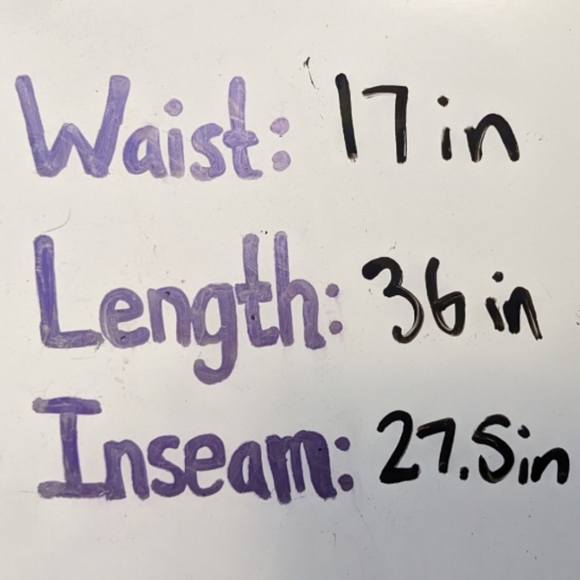 Waist: 17 in
Length: 36 in
Inseam: 27.5in